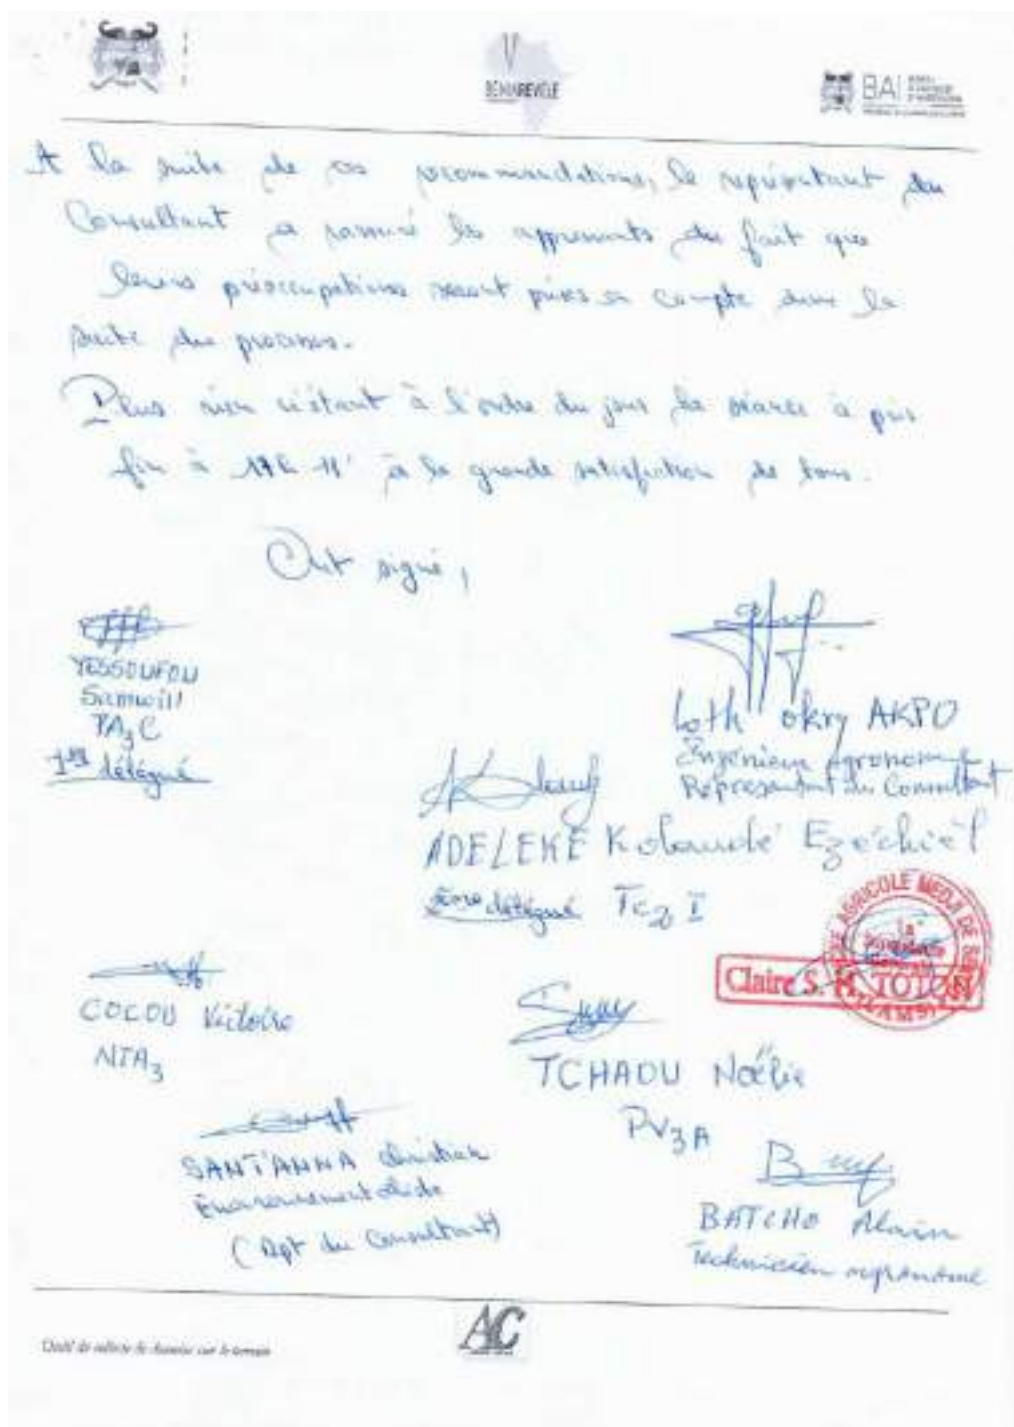 BENIN REVELE
BAI
A la suite de ces recommandations, le représentant du
Consultant a rassuré les apprenants du fait que
leurs préoccupations seront prises en compte dans la
suite du processus.
Plus rien n'étant à l'ordre du jour la séance a pris
fin à 17h 11' à la grande satisfaction de tous.
Ont signé,
YESSOUFOU
Samuill
TA3C
1er délégué
Loth okry AKPO
Ingénieur Agronome
Représentant du Consultant
ADELEKE Kolawolé Ezéchiël
2ème délégué Tc3 I
AGRICOLE MEDJI DE
Claire S. H. TOTON
COCOU Victoire
NTA3
TCHAOU Noëlie
PV3A
SANT'ANNA Christian
Environnementaliste
(Rpt du Consultant)
BATCHO Alain
Technicien agronome
AC
Outil de collecte de données sur le terrain